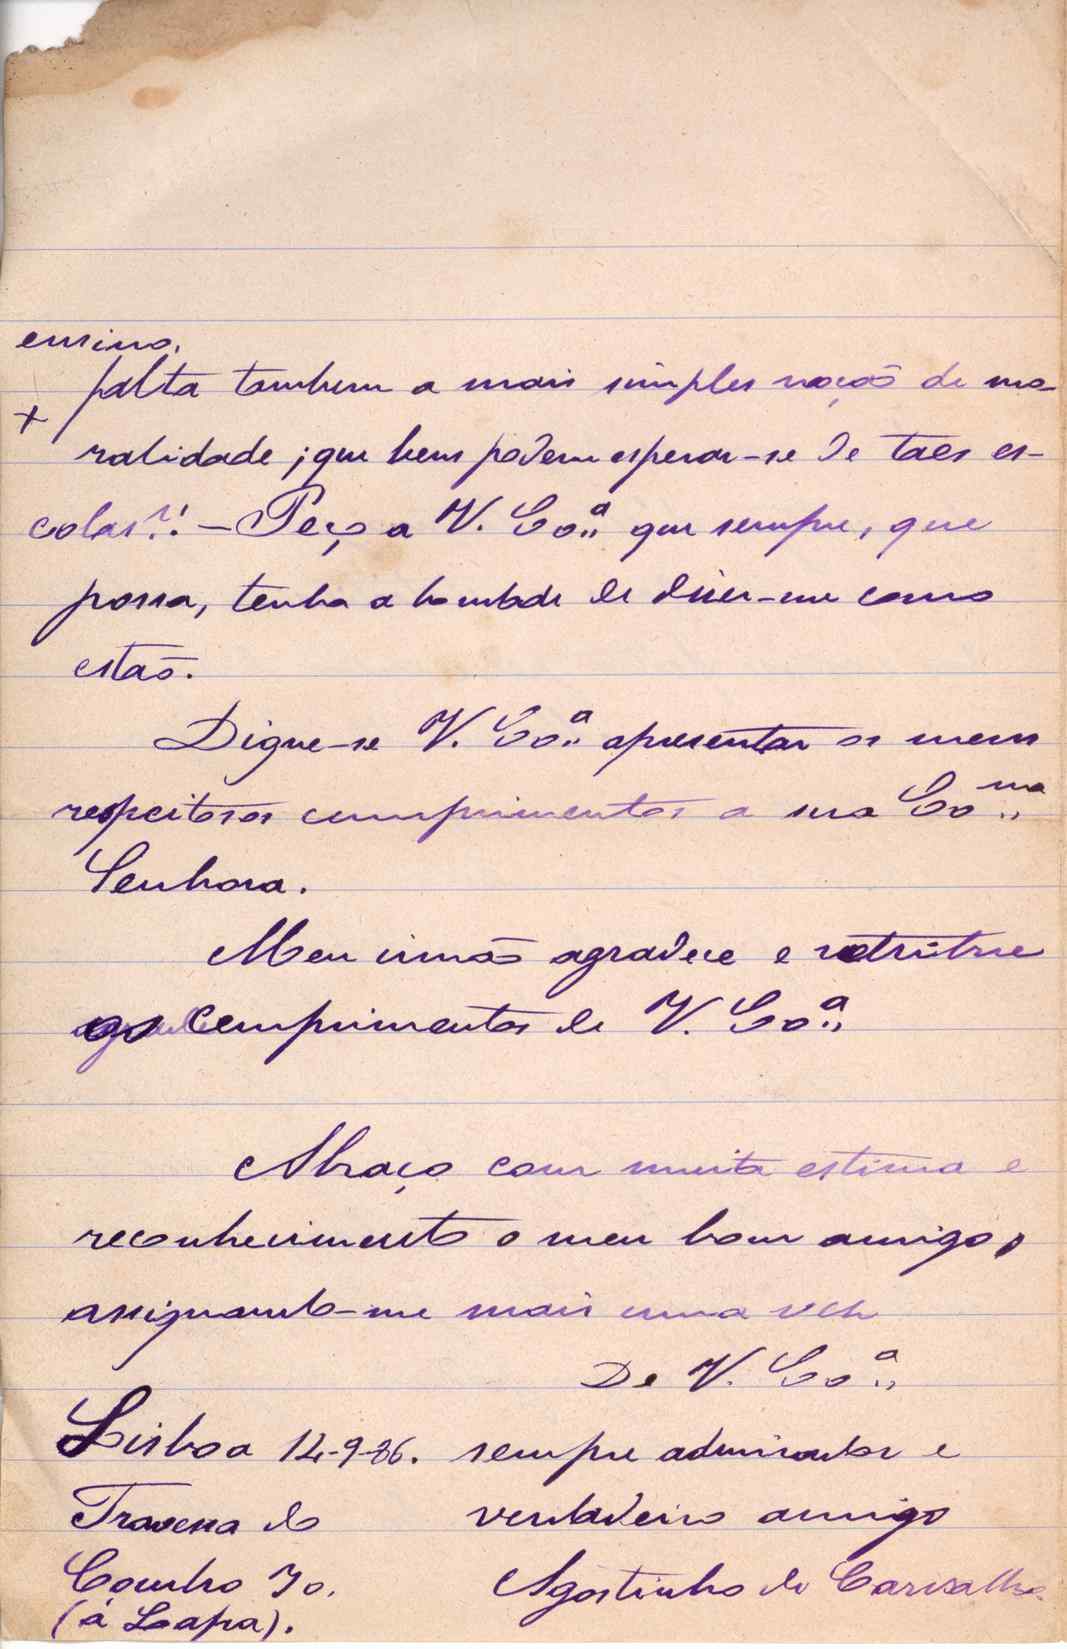 ensino.
+ falta tambem a mais simples noção de mo-
ralidade; que bem podem esperar-se de taes es-
colas?! – Peço a V. Ex.ª que sempre, que
possa, tenha a bondade de dizer-me como
estão.
Digne-se V. Ex.ª apresentar os meus
respeitosos cumprimentos a sua Ex.ma
Senhora.
Meu irmão agradece e retribue
os cumprimentos de V. Ex.ª
Abraço com muita estima e
reconhecimento o meu bom amigo,
assignando-me mais uma vez
De V. Ex.ª
Lisboa 14-9-86. sempre admirador e
Travessa do verdadeiro amigo
Combro 70. Agostinho de Carvalho
(á Lapa).